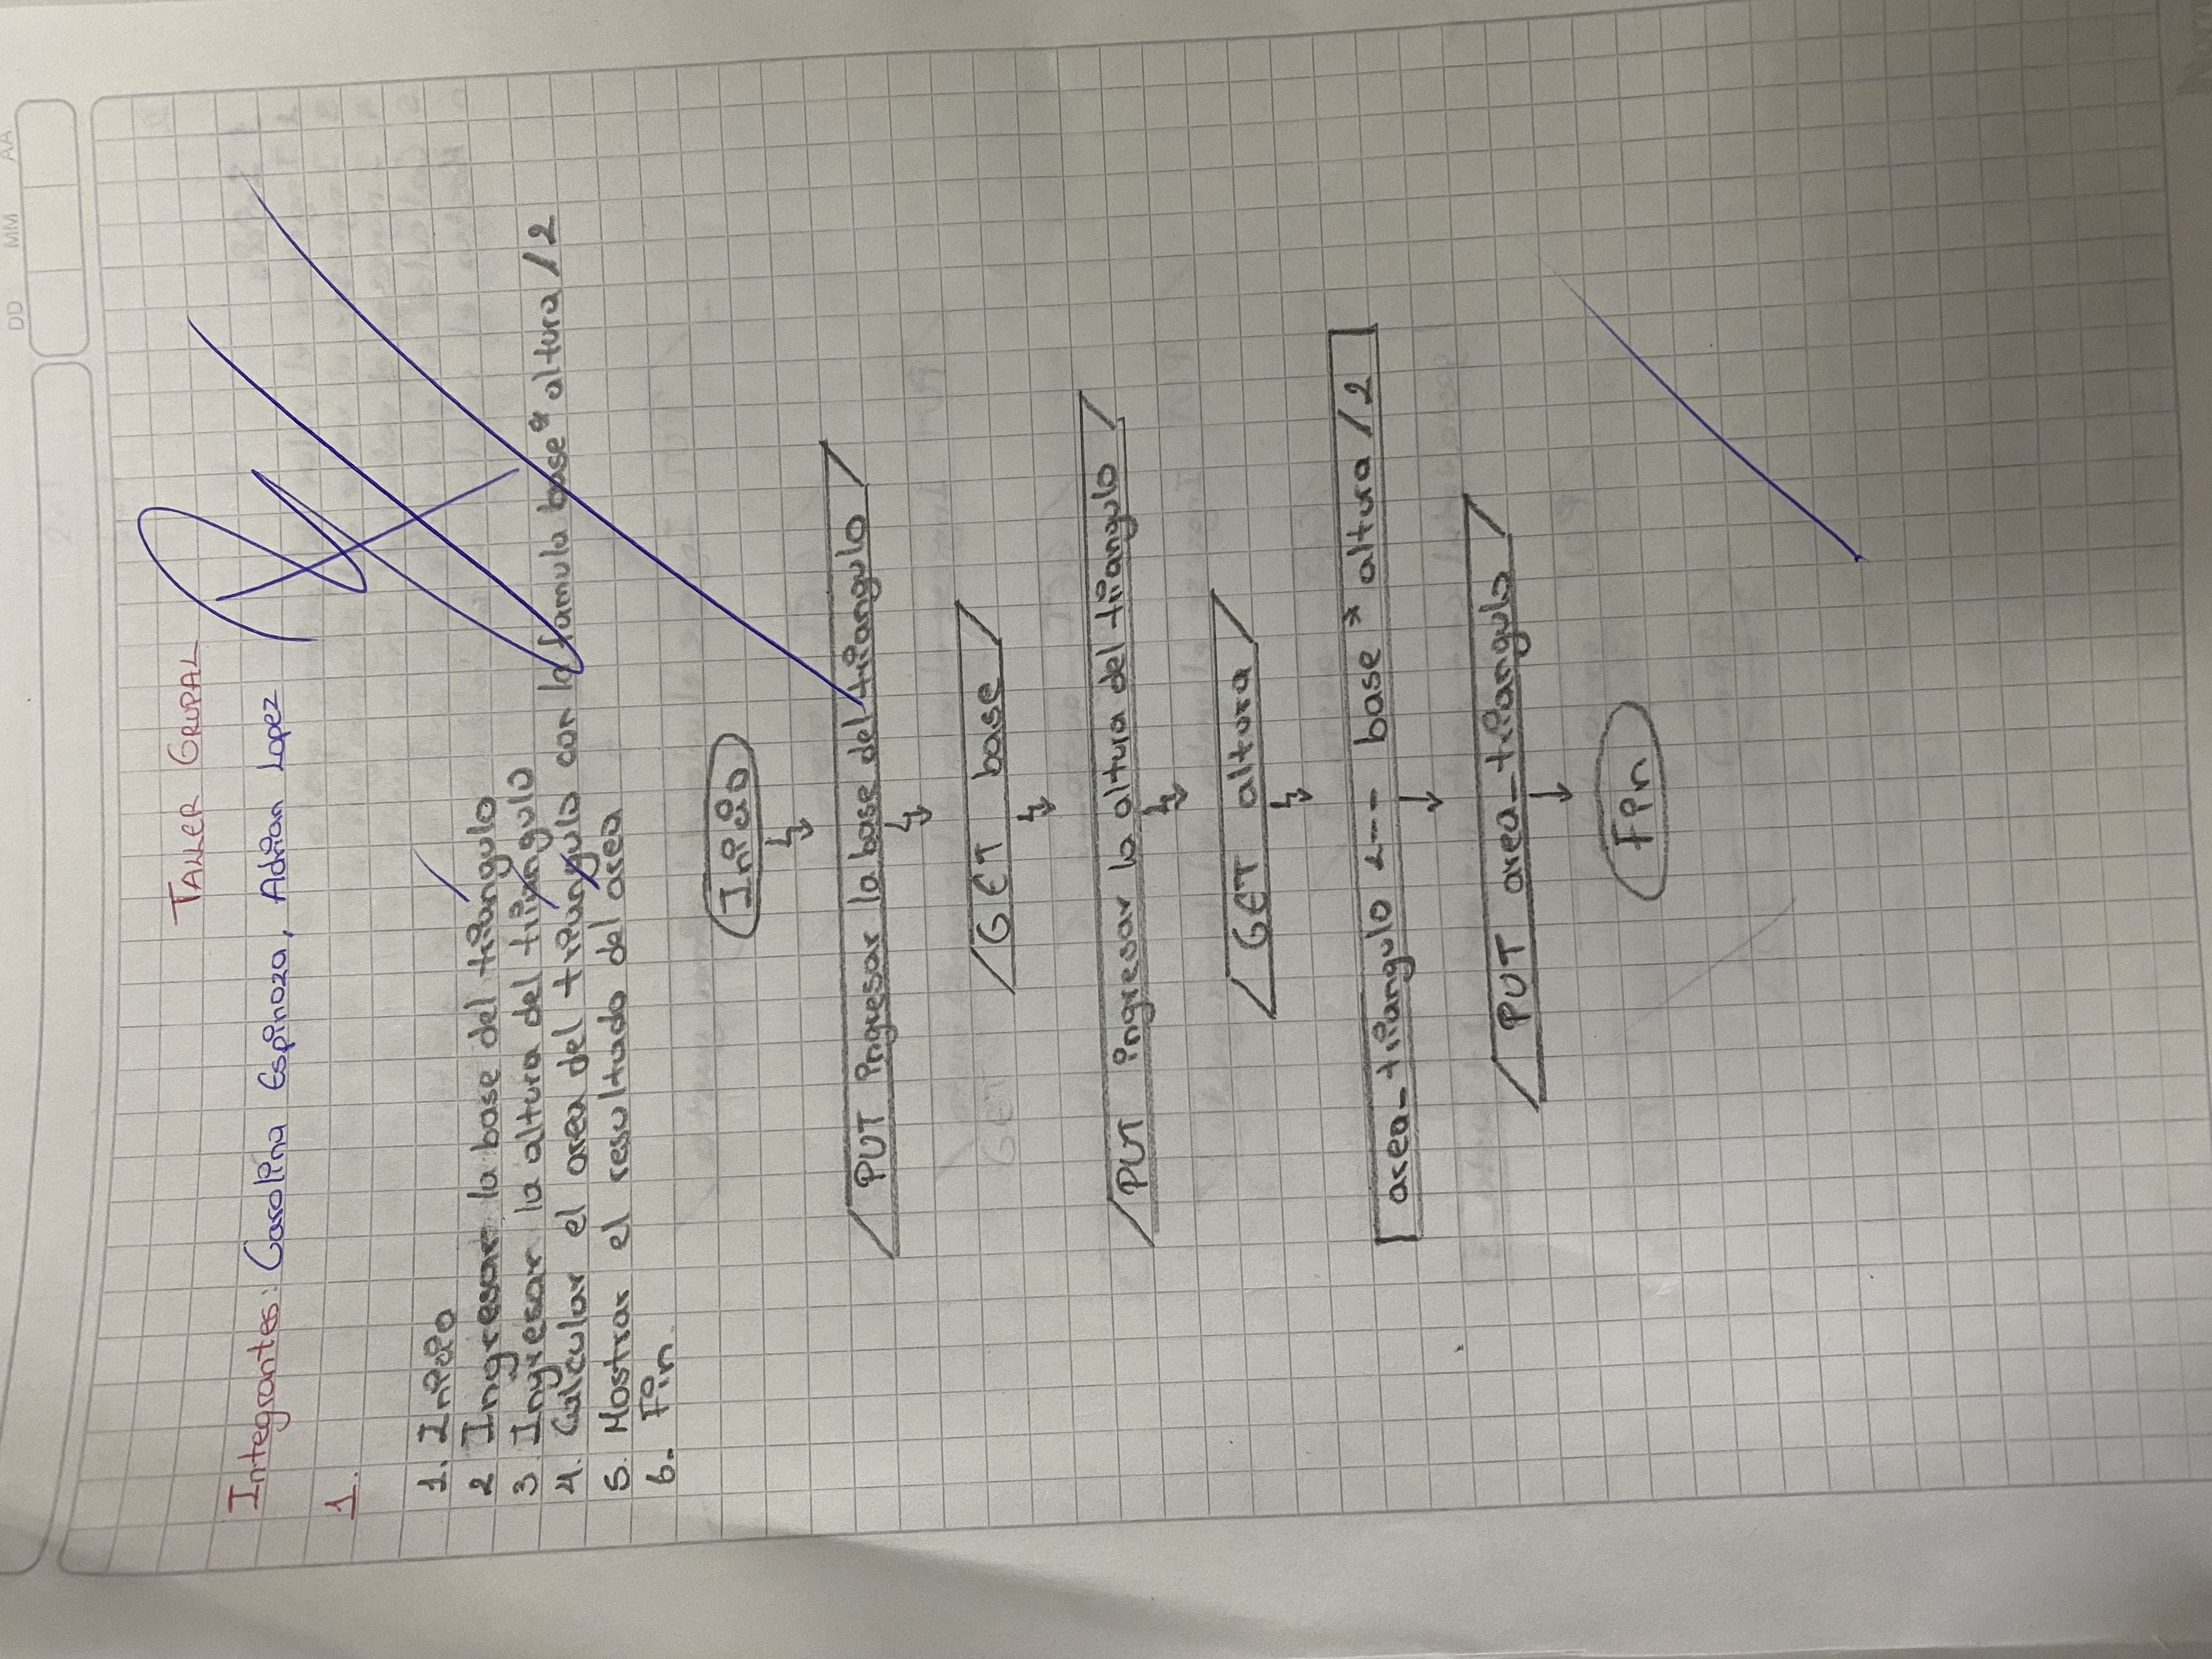 DD MM AA
TALLER GRUPAL
Integrantes: Carolina Espinoza, Adrian Lopez
1.
1. Inicio
2 Ingresar la base del triangulo
3 Ingresar la altura del triangulo
4. Calcular el area del triangulo con la famula base * altura / 2
5. Mostrar el resultado del area
6. Fin.
Inicio
PUT ingresar la base del triangulo
GET base
PUT ingresar la altura del triangulo
GET altura
area_triangulo <-- base * altura / 2
PUT area_triangulo
Fin